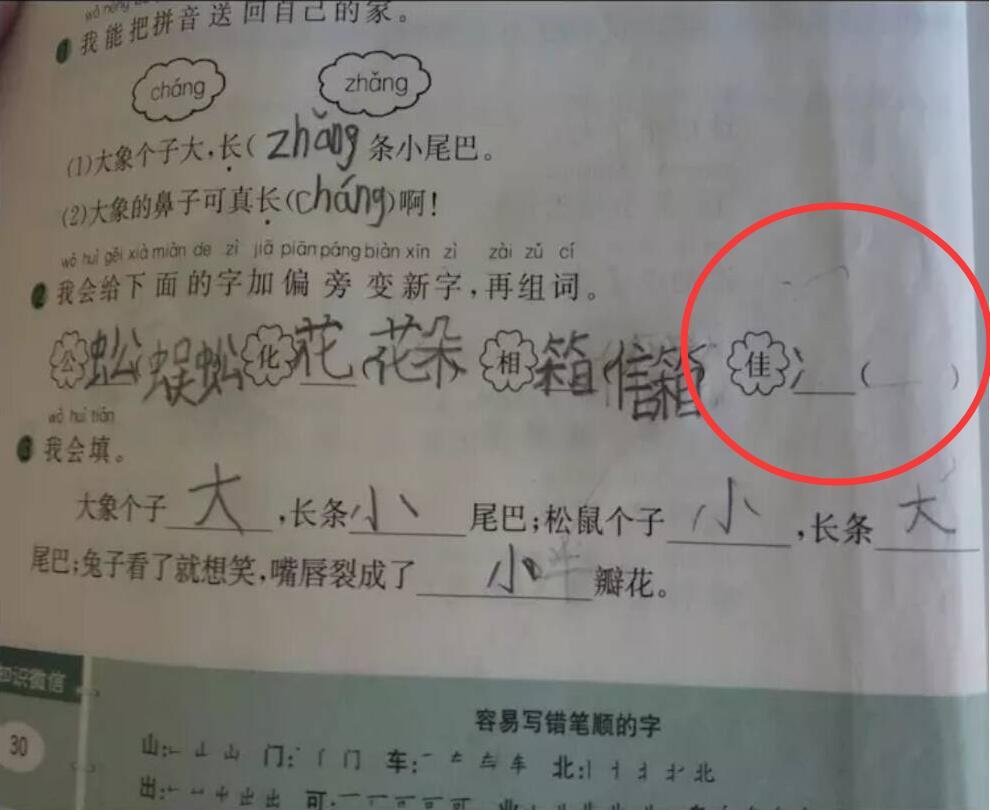 我能把拼音送回自己的家。
cháng zhǎng
(1)大象个子大,长( zhǎng 条小尾巴。
(2)大象的鼻子可真长(cháng)啊!
wǒ huì gěi xià miàn de zì jiā piān páng biàn xīn zì zài zǔ cí
2 我会给下面的字加偏旁变新字,再组词。
公 蚣 蜈蚣 化 花 (花朵) 相 箱 (信箱) 佳 氵 ( )
wǒ huì tián
3 我会填。
大象个子 大 ,长条 小 尾巴;松鼠个子 小 ,长条 大
尾巴;兔子看了就想笑,嘴唇裂成了 小 瓣花。
知识微信
容易写错笔顺的字
30
山: 山 门: 门 车: 车 北: 北
出: 出 可: